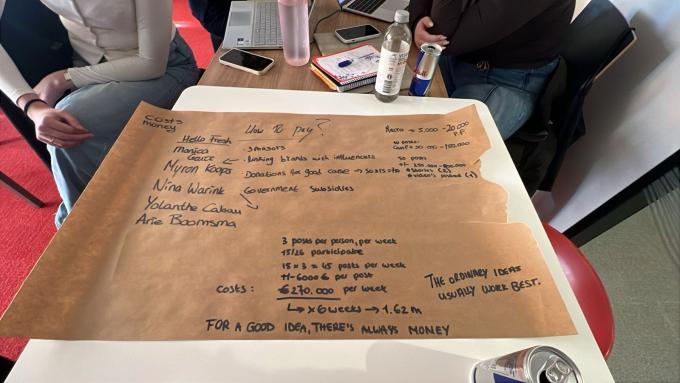 Costs
money
How to pay?
Hello Fresh
Monica
Geuze
Myron Koops
Nina Warink
Yolanthe Cabau
Arie Boomsma
Sponsors
linking brands with influencers
Donations for good case
Government Subsidies
Macro = 5.000 - 20.000
P.P.
10 posts
50 posts
3 posts per person, per week
15/26 participate
15 x 3 = 45 posts per week
+/- 6000 € per post
Costs: €270.000 per week
↳ x 6 weeks → 1.62 m
THE ORDINARY IDEAS
USUALLY WORK BEST.
FOR A GOOD IDEA, THERE'S ALWAYS MONEY